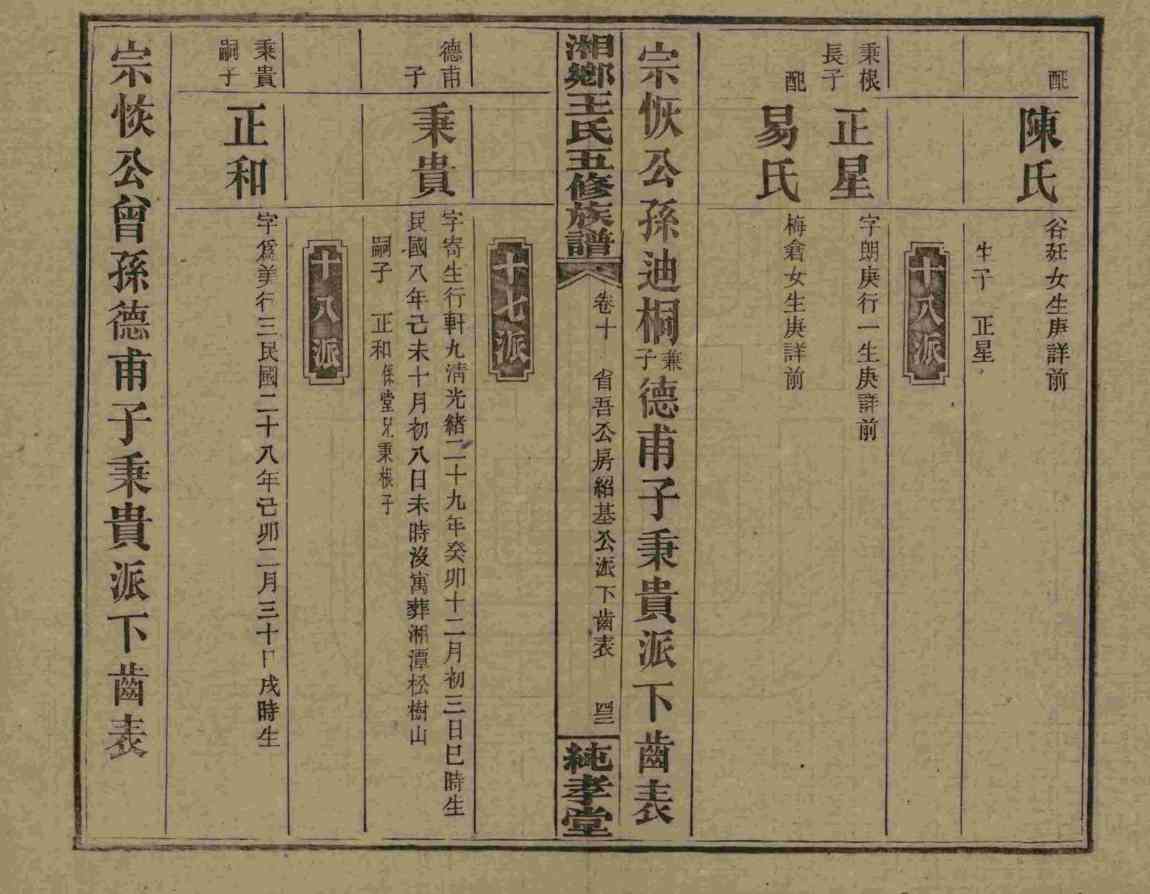 配
陳氏
谷廷女生庚詳前
生子 正星
十八派
秉根長子
正星
字朗庚行一生庚詳前
配
易氏
梅倉女生庚詳前
宗恢公孫迪桐兼子德甫子秉貴派下齒表
湘鄉王氏五修族譜
卷十 省吾公房紹基公派下齒表
純孝堂
十七派
德甫子
秉貴
字寄生行軒九清光緒二十九年癸卯十二月初三日巳時生
民國八年己未十月初八日未時沒寓葬湘潭松樹山
嗣子 正和係堂兄秉根子
十八派
秉貴嗣子
正和
字為美行三民國二十八年己卯二月三十日戌時生
宗恢公曾孫德甫子秉貴派下齒表